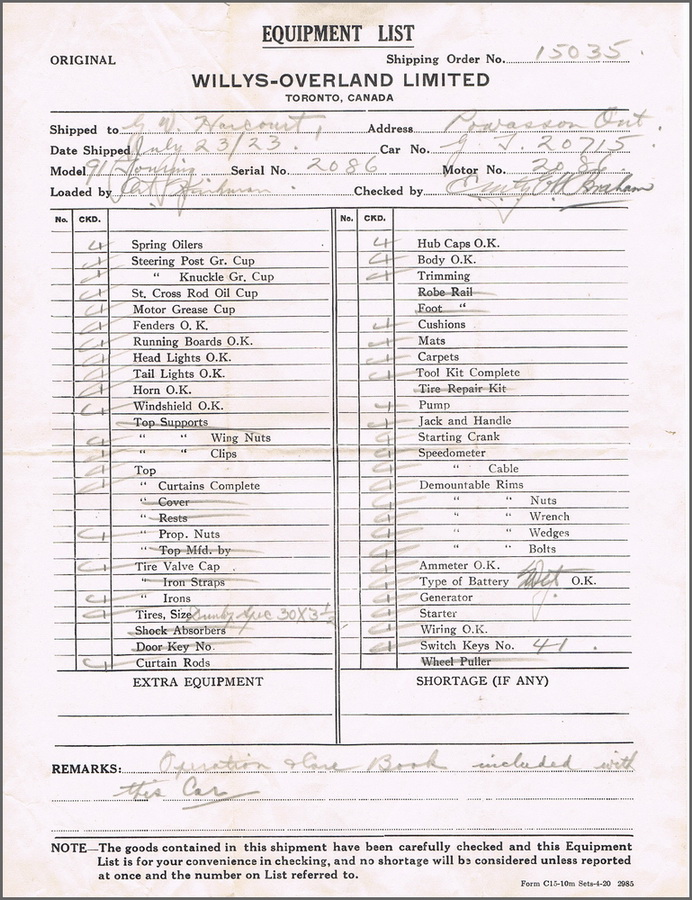 EQUIPMENT LIST
ORIGINAL Shipping Order No. 15035.
WILLYS-OVERLAND LIMITED
TORONTO, CANADA
Shipped to G W. Harcourt, Address Powasson Ont.
Date Shipped July 23/23. Car No. 20715
Model 91 Touring Serial No. 2086 Motor No. 2086
Loaded by Checked by
No. CKD. No. CKD.
Spring Oilers Hub Caps O.K.
Steering Post Gr. Cup Body O.K.
" Knuckle Gr. Cup Trimming
St. Cross Rod Oil Cup Robe Rail
Motor Grease Cup Foot "
Fenders O. K. Cushions
Running Boards O.K. Mats
Head Lights O.K. Carpets
Tail Lights O.K. Tool Kit Complete
Horn O.K. Tire Repair Kit
Windshield O.K. Pump
Top Supports Jack and Handle
" " Wing Nuts Starting Crank
" " Clips Speedometer
Top " Cable
" Curtains Complete Demountable Rims
" Cover " " Nuts
" Rests " " Wrench
" Prop. Nuts " " Wedges
" Top Mfd. by " " Bolts
Tire Valve Cap Ammeter O.K.
" Iron Straps Type of Battery Wet O.K.
" Irons Generator
Tires, Size 30X3½ Starter
Shock Absorbers Wiring O.K.
Door Key No. Switch Keys No. 41.
Curtain Rods Wheel Puller
EXTRA EQUIPMENT SHORTAGE (IF ANY)
REMARKS: Operation & Care Book included with
this Car
NOTE—The goods contained in this shipment have been carefully checked and this Equipment
List is for your convenience in checking, and no shortage will be considered unless reported
at once and the number on List referred to.
Form C15-10m Sets-4-20 2985